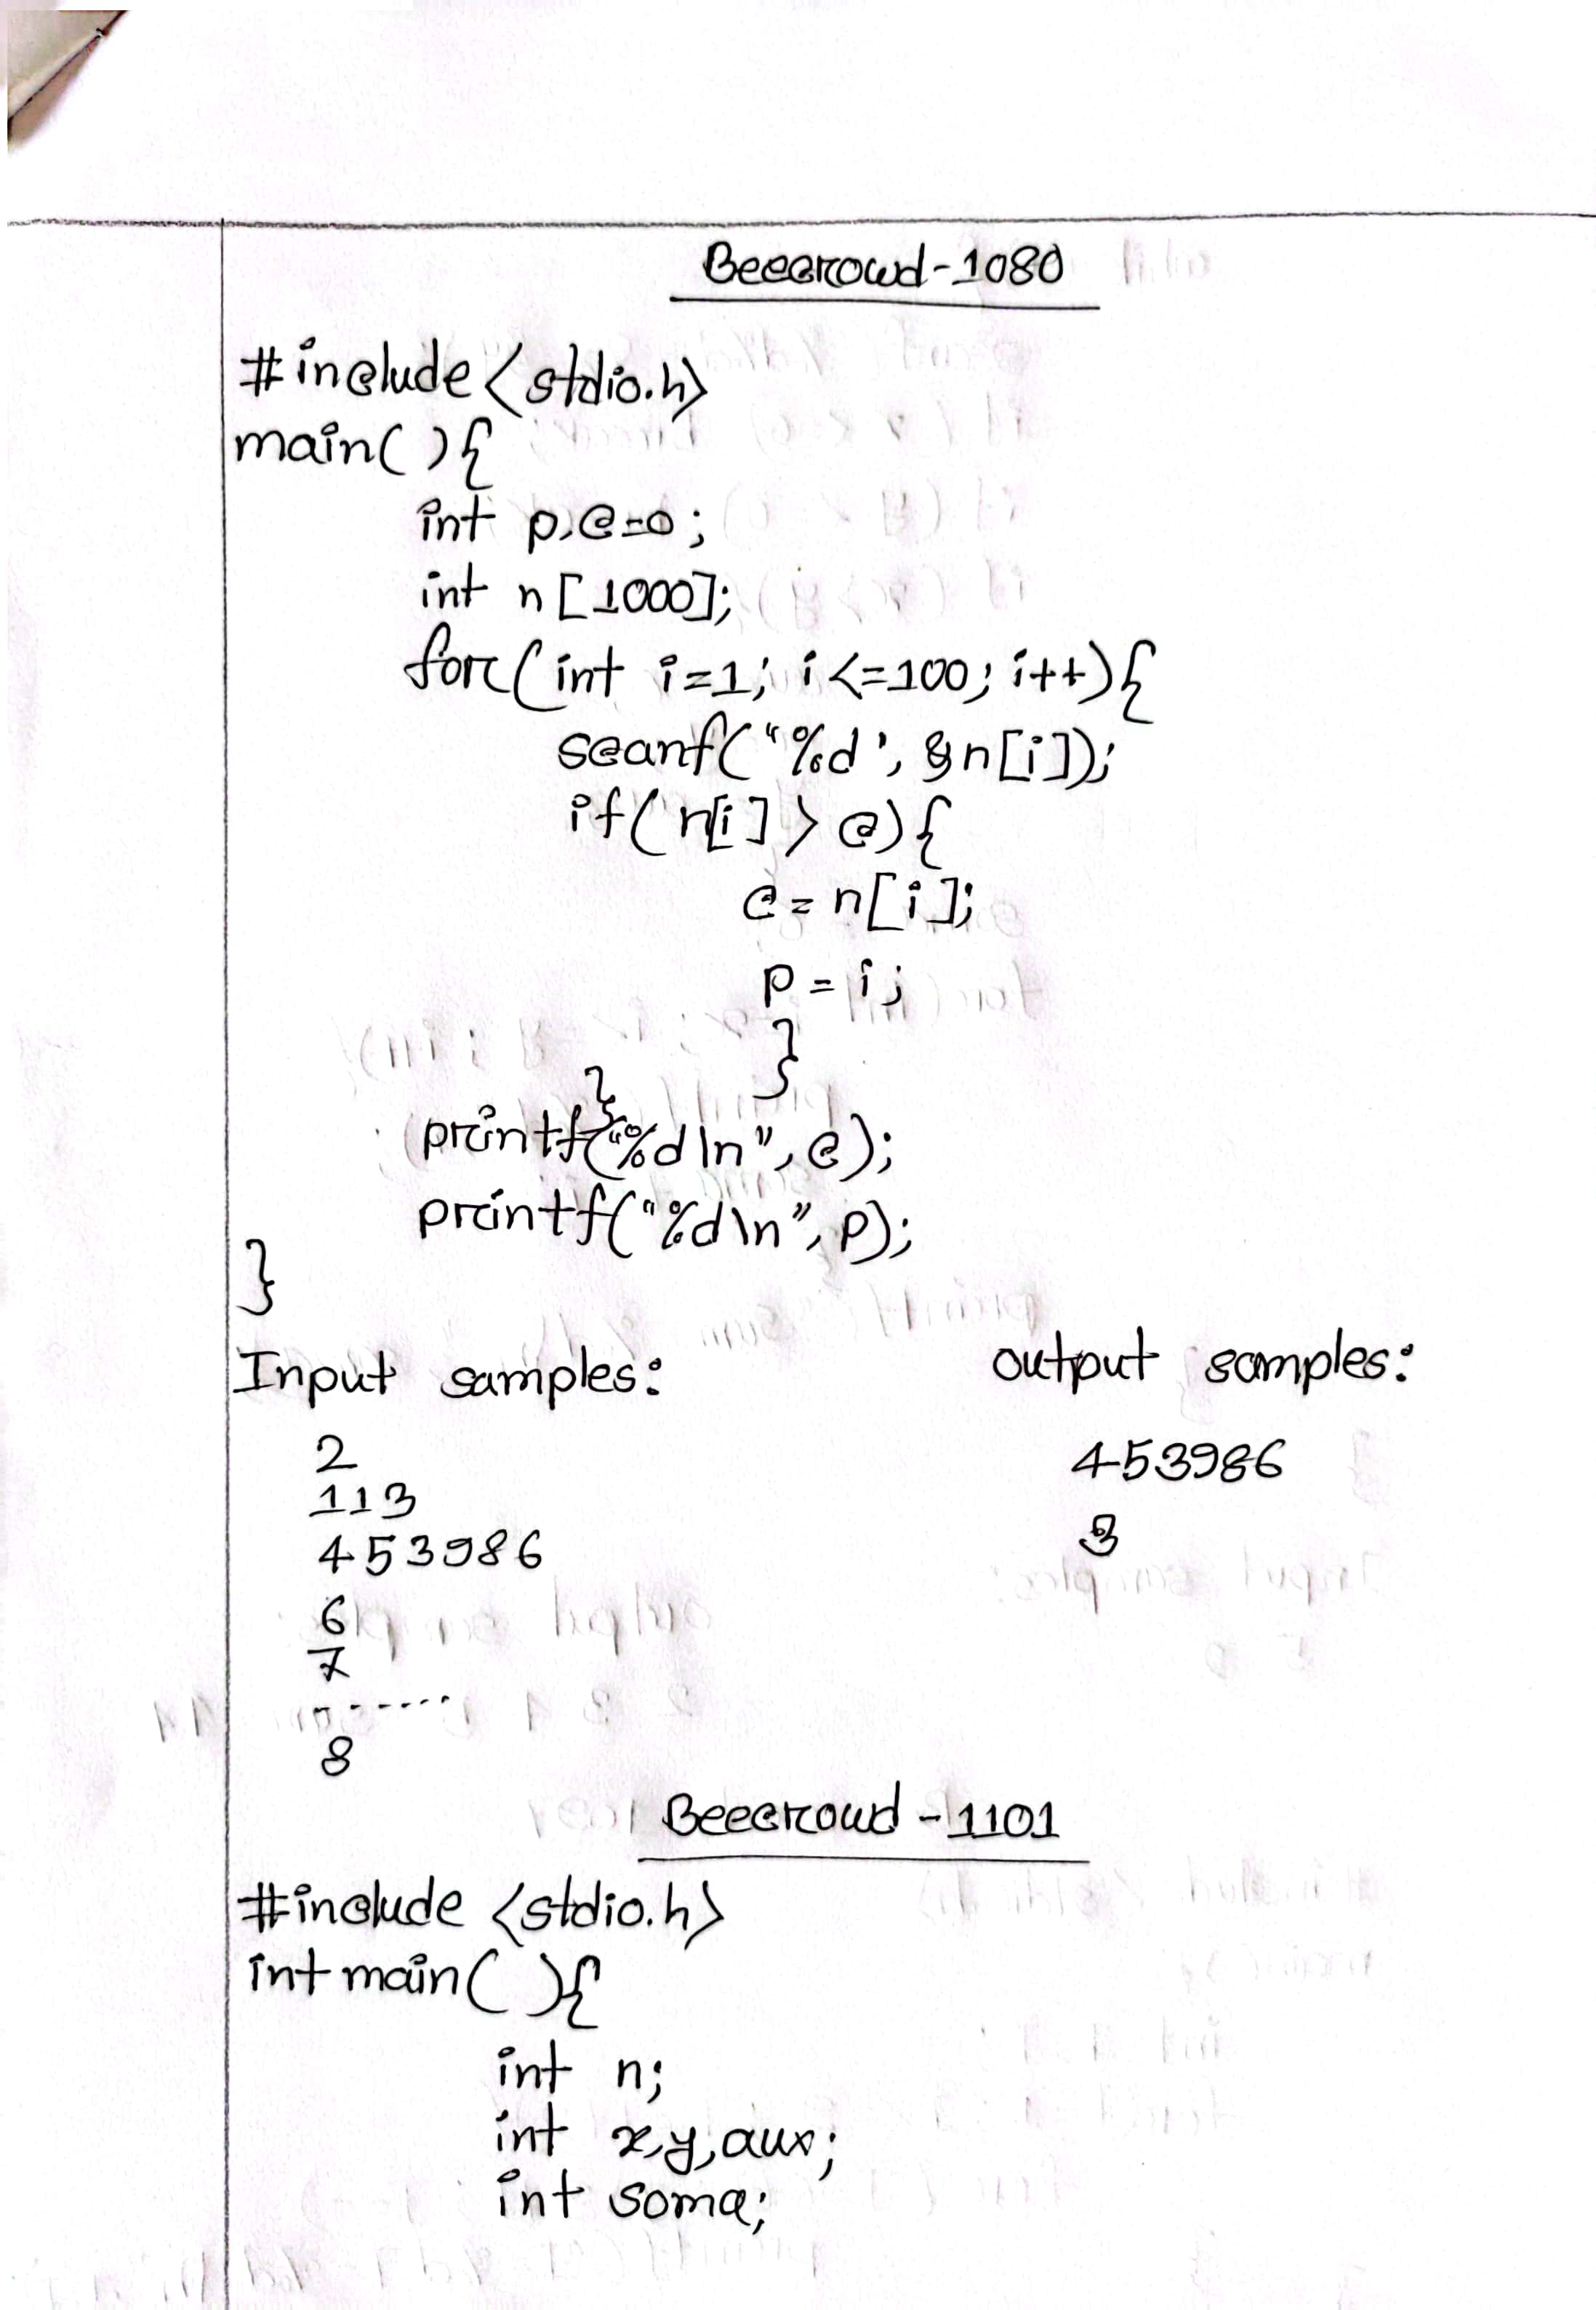 Beecrowd-1080
#include<stdio.h>
main(){
int p,c=0;
int n[1000];
for(int i=1; i<=100; i++){
scanf("%d", &n[i]);
if(n[i]>c){
c=n[i];
p=i;
}
}
printf("%d\n",c);
printf("%d\n",p);
}
Input samples:
output samples:
2
113
453986
6
7
.......
8
453986
3
Beecrowd-1101
#include <stdio.h>
int main(){
int n;
int x,y,aux;
int soma;